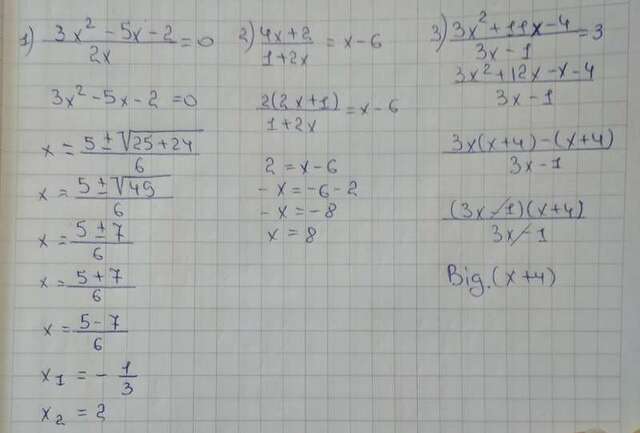 1) (3x² - 5x - 2)/(2x) = 0
3x² - 5x - 2 = 0
x = (5 ± √(25 + 24))/6
x = (5 ± √49)/6
x = (5 ± 7)/6
x = (5 + 7)/6
x = (5 - 7)/6
x₁ = - 1/3
x₂ = 2
2) (4x + 2)/(1 + 2x) = x - 6
(2(2x + 1))/(1 + 2x) = x - 6
2 = x - 6
- x = -6 - 2
- x = -8
x = 8
3) (3x² + 11x - 4)/(3x - 1) = 3
(3x² + 12x - x - 4)/(3x - 1)
(3x(x + 4) - (x + 4))/(3x - 1)
((3x - 1)(x + 4))/(3x - 1)
Big. (x + 4)